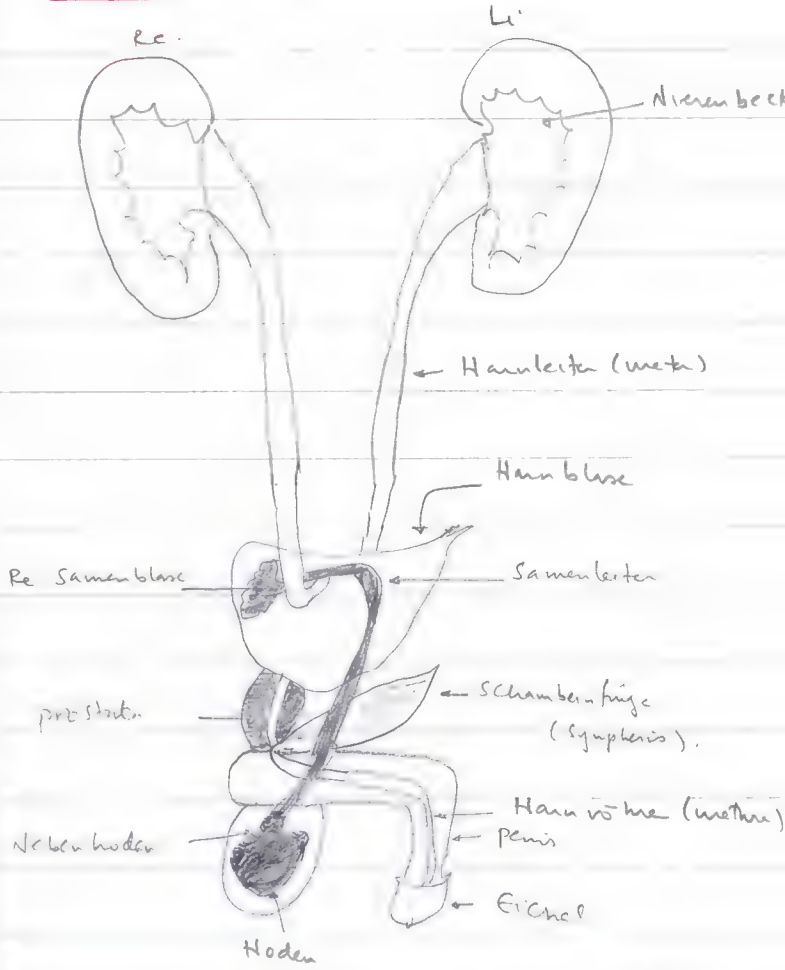 Re.
Li
Nierenbeck
Harnleiter (ureter)
Harnblase
Re Samenblase
Samenleiter
prostata
Schambeinfuge
(Symphesis).
Harnröhre (urethra)
penis
Nebenhoden
Eichel
Hoden